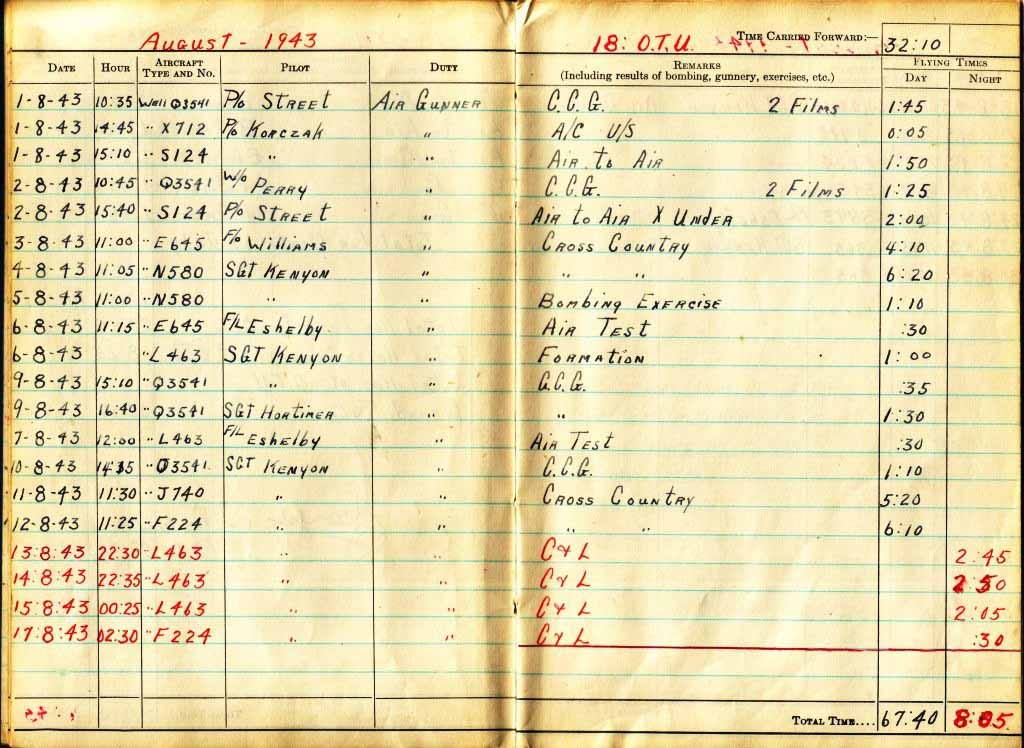 August - 1943 18: O.T.U. Time Carried Forward:— 32:10
Date Hour Aircraft Type and No. Pilot Duty Remarks (Including results of bombing, gunnery, exercises, etc.) Flying Times Day Night
1-8-43 10:35 Well Q3541 P/o Street Air Gunner C.C.G. 2 Films 1:45
1-8-43 14:45 " X712 P/o Korczak " A/C U/S 0:05
1-8-43 15:10 " S124 " " Air to Air 1:50
2-8-43 10:45 " Q3541 W/o Perry " C.C.G. 2 Films 1:25
2-8-43 15:40 " S124 P/o Street " Air to Air X Under 2:00
3-8-43 11:00 " E645 F/o Williams " Cross Country 4:10
4-8-43 11:05 " N580 Sgt Kenyon " " " 6:20
5-8-43 11:00 " N580 " " Bombing Exercise 1:10
6-8-43 11:15 " E645 F/L Eshelby " Air Test :30
6-8-43 " L463 Sgt Kenyon " Formation 1:00
9-8-43 15:10 " Q3541 " " C.C.G. :35
9-8-43 16:40 " Q3541 Sgt Hortimer " " 1:30
7-8-43 12:00 " L463 F/L Eshelby " Air Test :30
10-8-43 " Q3541 Sgt Kenyon " C.C.G. 1:10
11-8-43 11:30 " J740 " " Cross Country 5:20
12-8-43 11:25 " F224 " " " " 6:10
13:8:43 22:30 " L463 " " C & L 2:45
14:8:43 22:35 " L463 " " C & L 2:50
15:8:43 00:25 " L463 " " C & L 2:05
17:8:43 02:30 " F224 " " C & L :30
Total Time.... 67:40 8:05